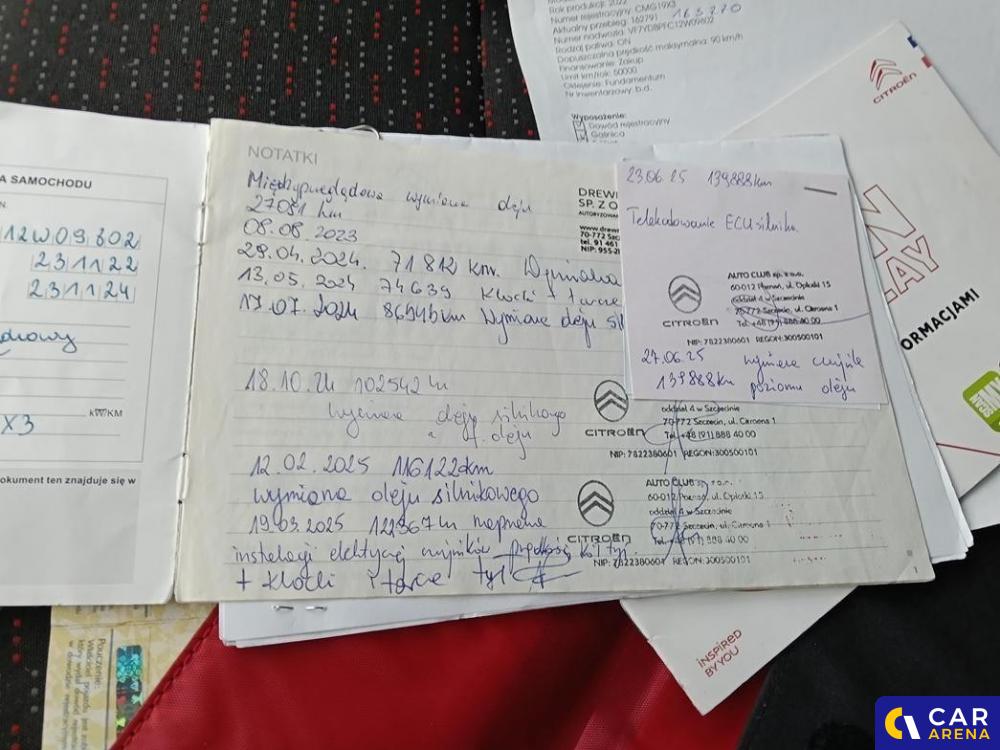 Rok produkcji: 2022
Numer rejestracyjny: CMG19X3
Aktualny przebieg: 162791 163270
Numer nadwozia: VF7YDBPFC12W09602
Rodzaj paliwa: ON
Dopuszczalna prędkość maksymalna: 90 km/h
Finansowanie: Zakup
Limit km/rok: 50000
Oklejenie: Fundamentum
Nr inwentarzowy: b.d.
Wyposażenie:
Dowód rejestracyjny
Gaśnica
CITROËN
ORMACJAMI
INSPIRED
BY YOU
A SAMOCHODU
12W09602
231122
231124
kW/KM
X3
okument ten znajduje się w
NOTATKI
Międzyprzeglądowa wymiana oleju
27081 km
08.08.2023
29.04.2024. 71812 km. Wymiana
13.05.2024 74639 Klocki + tarcze
17.07.2024 86546km Wymiana oleju sil
18.10.24 102542 km
wymiana oleju silnikowego
a f. oleju
12.02.2025 116122km
wymiana oleju silnikowego
19.03.2025 122367 km naprawa
instalacji elektrycznej czujników prędkości kół tył
+ klocki i tarcze tył
DREW
SP. Z O
AUTORYZOWAN
www.drew
70-772 Szc
tel. 91 461
NIP: 955-2
23.06.25 139888km
Telekodowanie ECU silnika
CITROËN
AUTO CLUB sp. z o.o.
60-012 Poznań, ul. Opłotki 15
oddział 4 w Szczecinie
70-772 Szczecin, ul. Caroena 1
Tel. +48 (91) 888 40 00
NIP: 7822380601 REGON:300500101
27.06.25 wymiana czujnika
139888km poziomu oleju
CITROËN
oddział 4 w Szczecinie
70-772 Szczecin, ul. Caroena 1
Tel. +48 (91) 888 40 00
NIP: 7822380601 REGON:300500101
CITROËN
AUTO CLUB sp. z o.o.
60-012 Poznań, ul. Opłotki 15
oddział 4 w Szczecinie
70-772 Szczecin, ul. Caroena 1
Tel. +48 (91) 888 40 00
NIP: 7822380601 REGON:300500101
1
Pouczenie:
CAR
ARENA